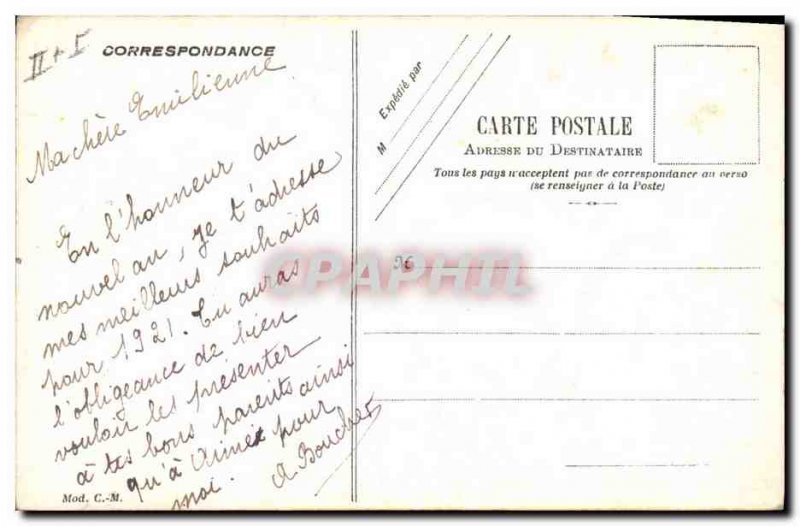 II + I
CORRESPONDANCE
Ma chère Emilienne
En l'honneur du
nouvel an, je t'adresse
mes meilleurs souhaits
pour 1921. Tu auras
l'obligeance de bien
vouloir les présenter
à tes bons parents ainsi
qu'à Aimée pour
moi. A Boucher
Mod. C.-M.
M Expédié par
CARTE POSTALE
ADRESSE DU DESTINATAIRE
Tous les pays n'acceptent pas de correspondance au verso
(se renseigner à la Poste)
26
CPAPHIL